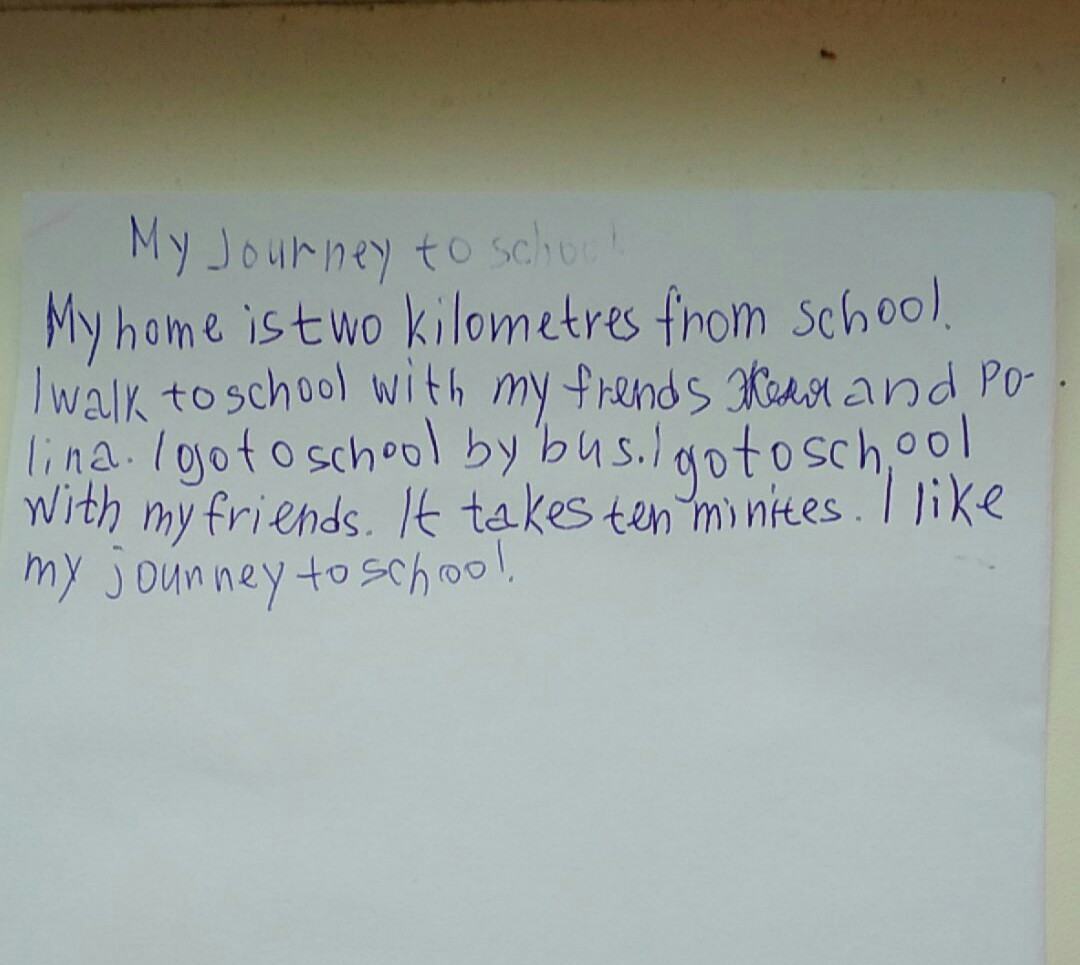 My Journey to school
My home is two kilometres from school.
I walk to school with my frends Женя and Po-
lina. I go to school by bus. I go to school
with my friends. It takes ten minites. I like
my jounney to school.